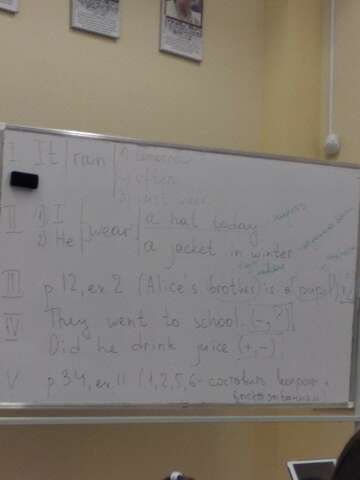 I It rain 1) tomorrow
2) often
3) last week
II 1) I wear a hat today
2) He a jacket in winter
III p.12, ex.2 (Alice's brother) is a (pupil)
IV They went to school. (-, ?)
Did he drink juice (+, -)
V p.34, ex.11 (1,2,5,6 - составить вопрос